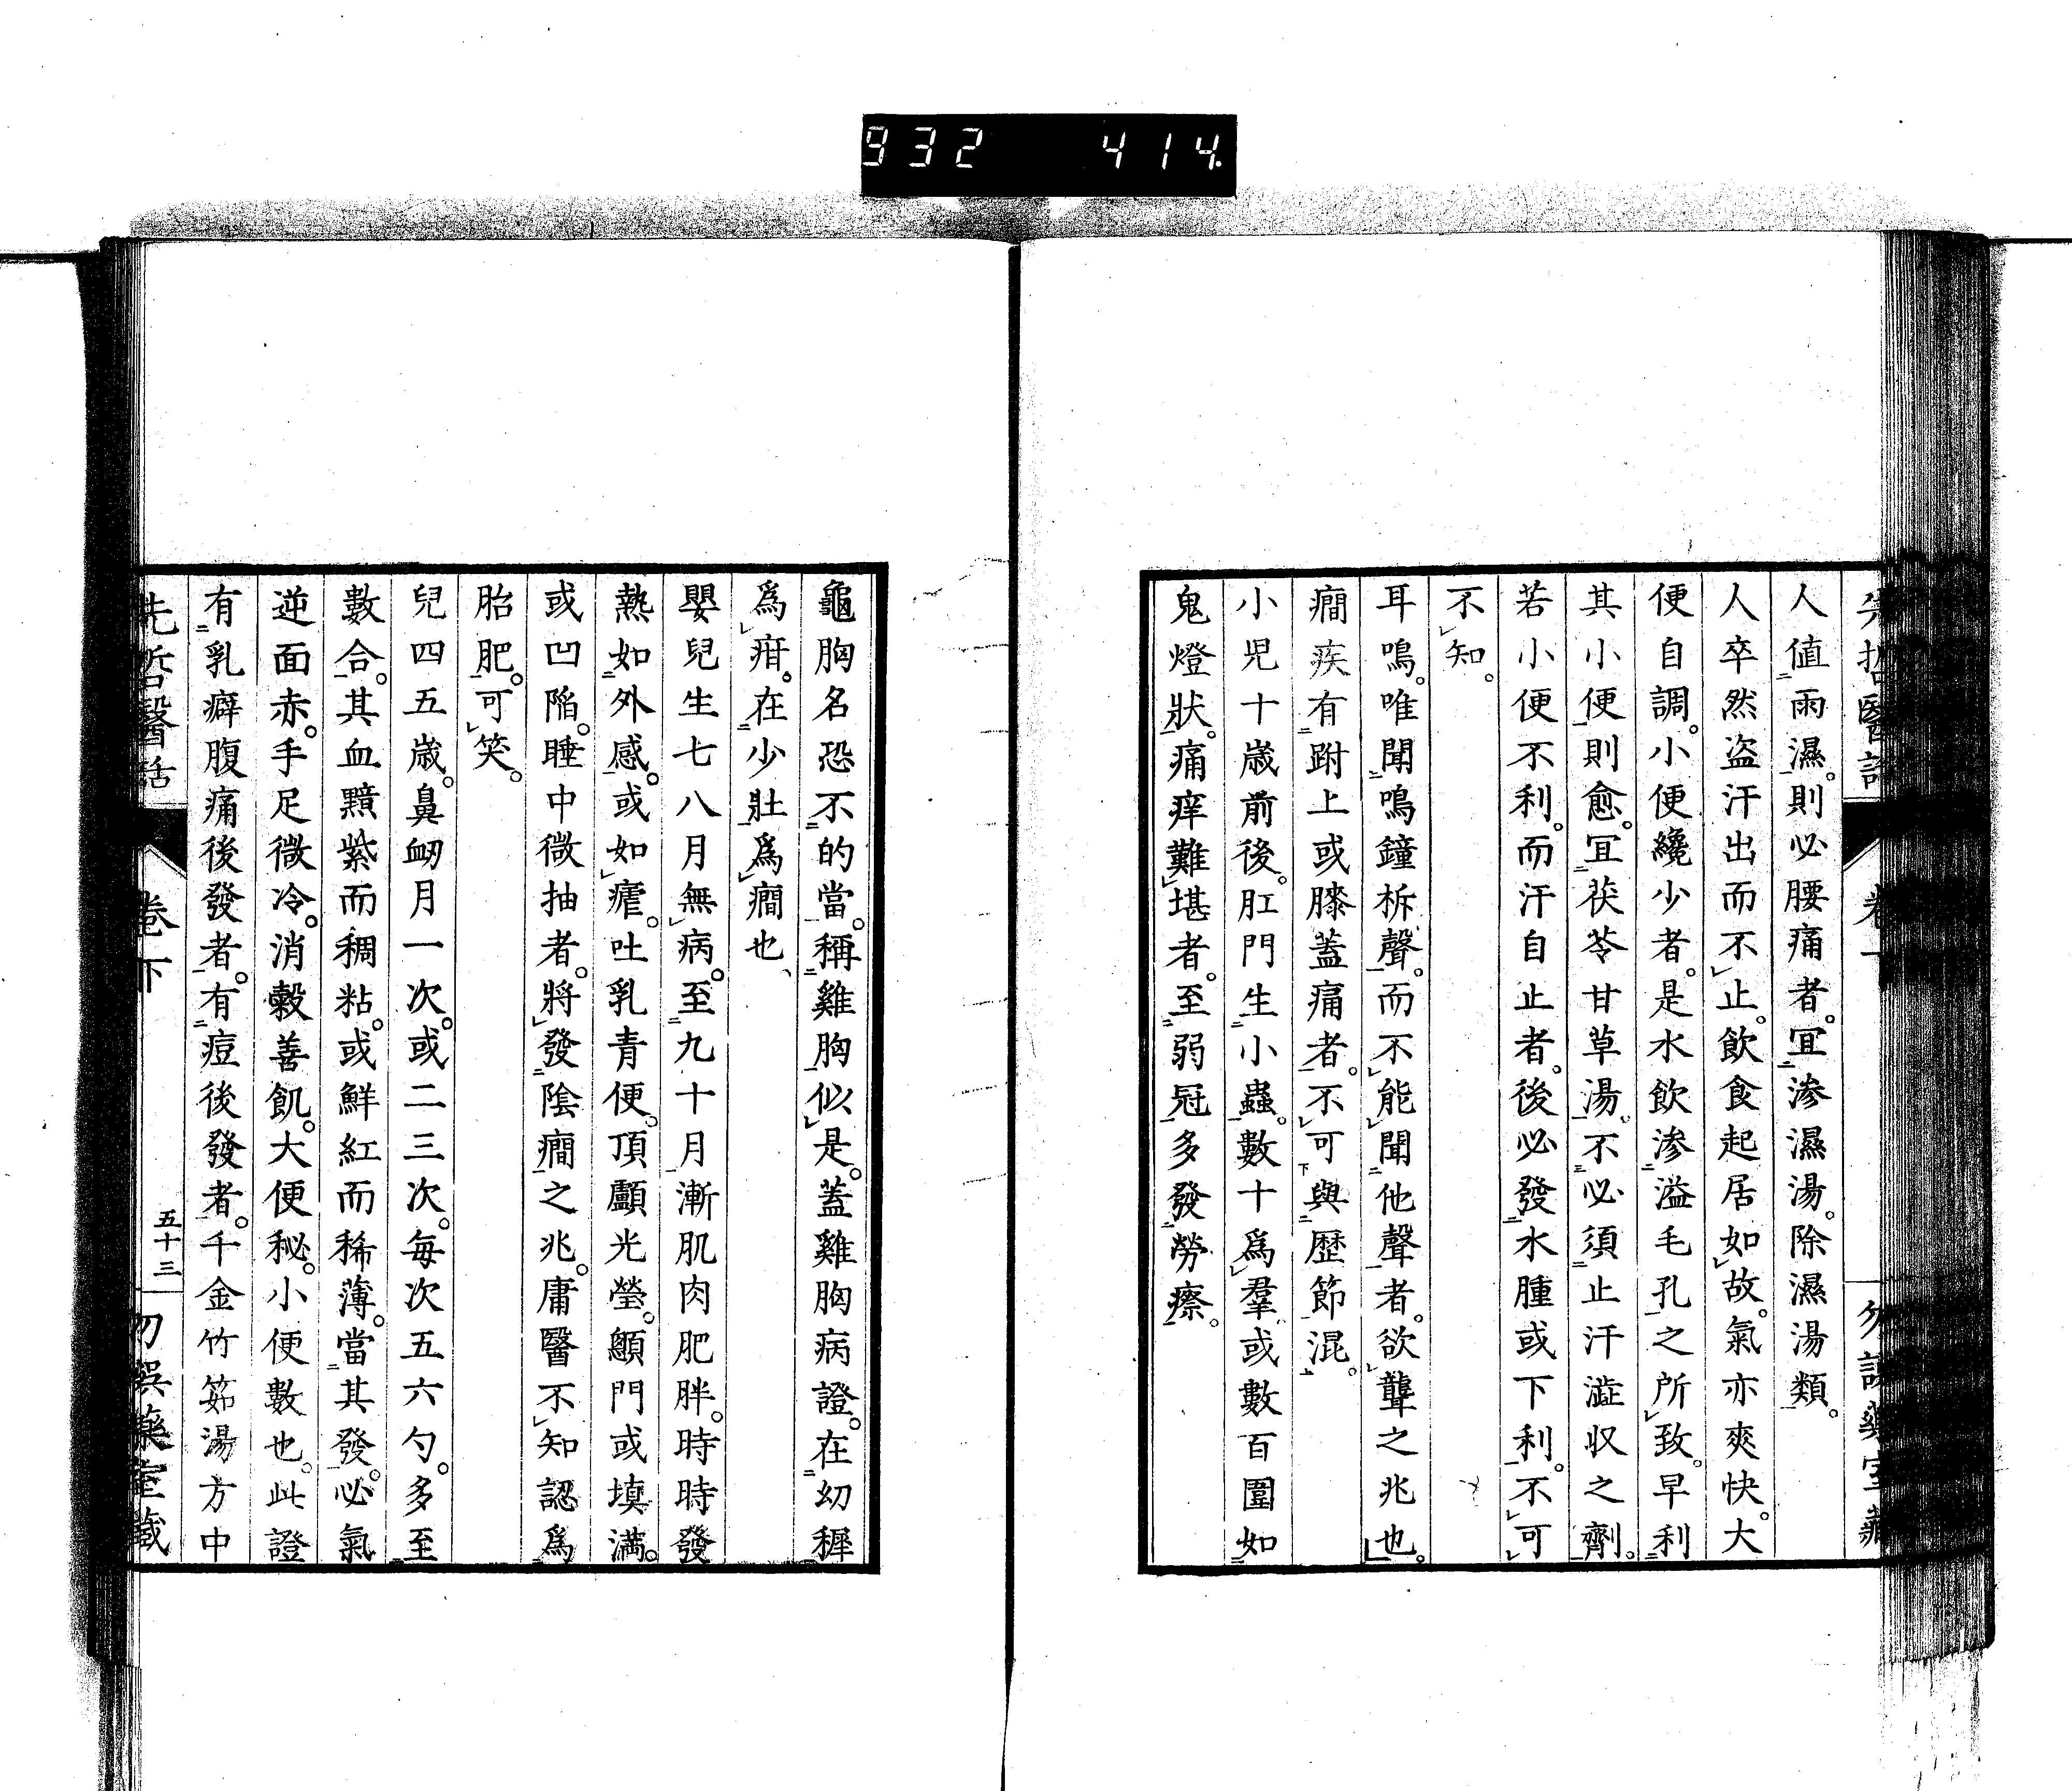 932 414.
先哲醫話 卷下 勿誤藥室藏
人値雨濕。則必腰痛者。宜滲濕湯。除濕湯類。
人卒然盗汗出而不止。飲食起居如故。氣亦爽快。大
便自調。小便纔少者。是水飲滲溢毛孔之所致。早利
其小便則愈。宜茯苓甘草湯。不必須止汗澁収之劑。
若小便不利。而汗自止者。後必發水腫或下利。不可
不知。
耳鳴。唯聞鳴鐘柝聲。而不能聞他聲者。欲聾之兆也。
癇疾有跗上或膝蓋痛者。不可與歴節混。
小児十歳前後。肛門生小蟲。數十爲羣或數百圍如
鬼燈狀。痛痒難堪者。至弱冠多發勞瘵。
龜胸名恐不的當。稱雞胸似是。蓋雞胸病證。在幼穉
爲疳。在少壯爲癇也、
嬰兒生七八月無病。至九十月漸肌肉肥胖。時時發
熱如外感。或如瘧。吐乳青便。頂顱光瑩。顖門或塡滿。
或凹陷。睡中微抽者。將發陰癇之兆。庸醫不知認爲
胎肥。可笑。
兒四五歳。鼻衂月一次。或二三次。毎次五六勺。多至
數合。其血黯紫而稠粘。或鮮紅而稀薄。當其發。必氣
逆面赤。手足微冷。消穀善飢。大便秘。小便數也。此證
有乳癖腹痛後發者。有痘後發者。千金竹茹湯方中
先哲醫話 卷下 五十三 勿誤藥室藏